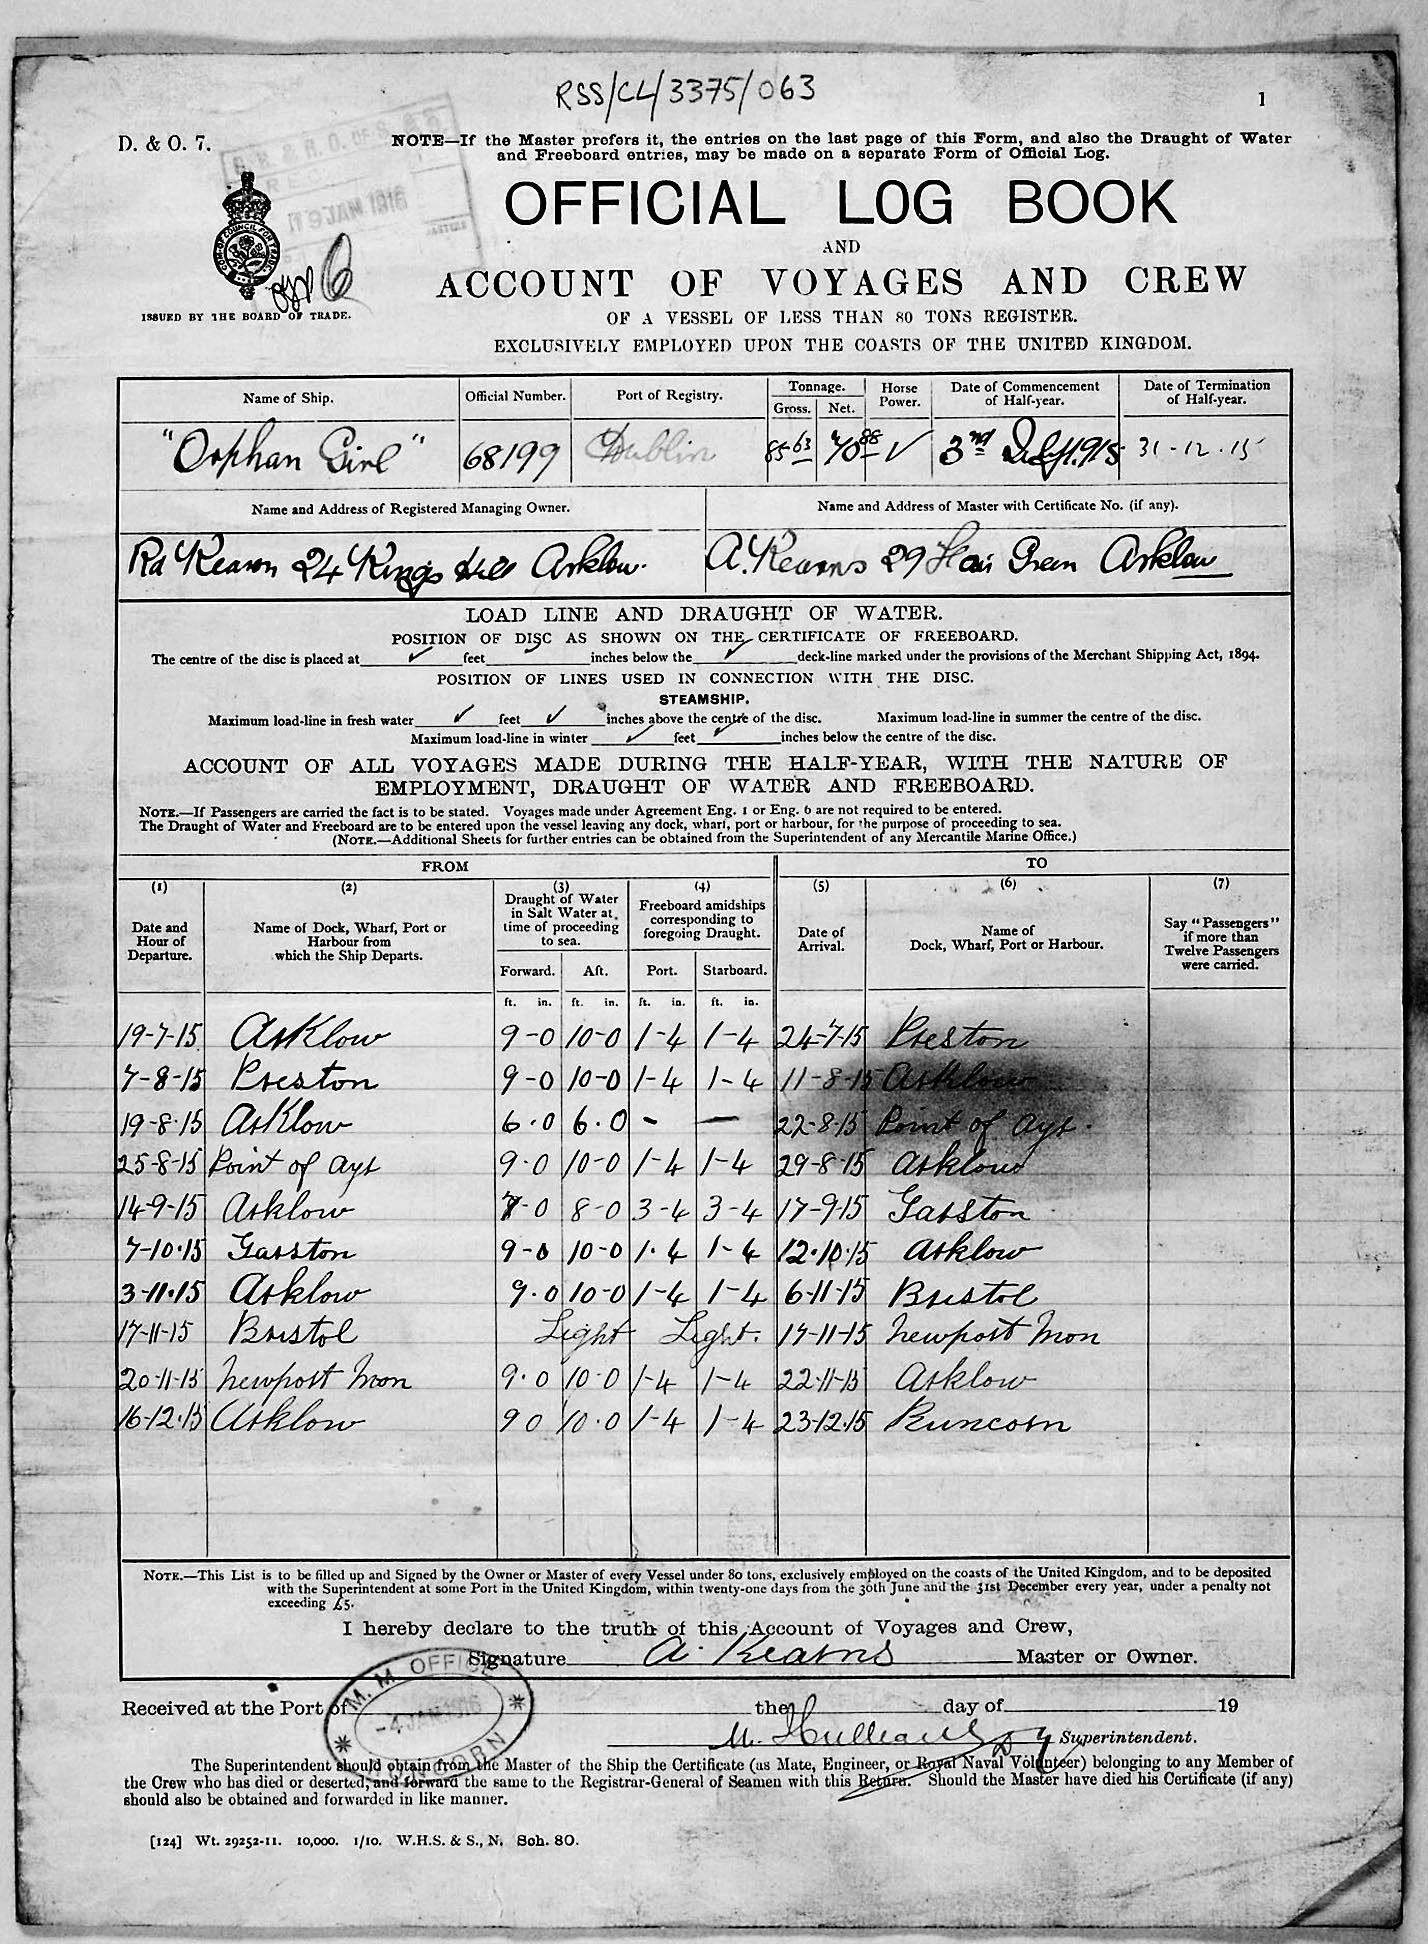 RSS/CL/3375/063
1
D. & O. 7.
NOTE—If the Master prefers it, the entries on the last page of this Form, and also the Draught of Water
and Freeboard entries, may be made on a separate Form of Official Log.
17 MAR 1916
OFFICIAL LOG BOOK
AND
ACCOUNT OF VOYAGES AND CREW
OF A VESSEL OF LESS THAN 80 TONS REGISTER.
EXCLUSIVELY EMPLOYED UPON THE COASTS OF THE UNITED KINGDOM.
ISSUED BY THE BOARD OF TRADE.
Name of Ship. Official Number. Port of Registry. Tonnage. Gross. Net. Horse Power. Date of Commencement of Half-year. Date of Termination of Half-year.
"Orphan Girl" 68199 Dublin 85 63 70 88 ✓ 3rd July 1915 31-12-15
Name and Address of Registered Managing Owner. Name and Address of Master with Certificate No. (if any).
Rd Kearon 24 Kings Hill Arklow. A. Kearns 29 Fair Green Arklow
LOAD LINE AND DRAUGHT OF WATER.
POSITION OF DISC AS SHOWN ON THE CERTIFICATE OF FREEBOARD.
The centre of the disc is placed at ✓ feet inches below the ✓ deck-line marked under the provisions of the Merchant Shipping Act, 1894.
POSITION OF LINES USED IN CONNECTION WITH THE DISC.
STEAMSHIP.
Maximum load-line in fresh water ✓ feet ✓ inches above the centre of the disc. Maximum load-line in summer the centre of the disc.
Maximum load-line in winter ✓ feet ✓ inches below the centre of the disc.
ACCOUNT OF ALL VOYAGES MADE DURING THE HALF-YEAR, WITH THE NATURE OF
EMPLOYMENT, DRAUGHT OF WATER AND FREEBOARD.
NOTE.—If Passengers are carried the fact is to be stated. Voyages made under Agreement Eng. 1 or Eng. 6 are not required to be entered.
The Draught of Water and Freeboard are to be entered upon the vessel leaving any dock, wharf, port or harbour, for the purpose of proceeding to sea.
(NOTE.—Additional Sheets for further entries can be obtained from the Superintendent of any Mercantile Marine Office.)
FROM TO
(1) (2) (3) (4) (5) (6) (7)
Date and Hour of Departure. Name of Dock, Wharf, Port or Harbour from which the Ship Departs. Draught of Water in Salt Water at time of proceeding to sea. Freeboard amidships corresponding to foregoing Draught. Date of Arrival. Name of Dock, Wharf, Port or Harbour. Say "Passengers" if more than Twelve Passengers were carried.
Forward. Aft. Port. Starboard.
ft. in. ft. in. ft. in. ft. in.
19-7-15 Arklow 9-0 10-0 1-4 1-4 24-7-15 Preston
7-8-15 Preston 9-0 10-0 1-4 1-4 11-8-15 Arklow
19-8-15 Arklow 6.0 6.0 - — 22-8-15 Point of Ayr.
25-8-15 Point of Ayr 9.0 10-0 1-4 1-4 29-8-15 Arklow
14-9-15 Arklow 7-0 8-0 3-4 3-4 17-9-15 Garston
7-10-15 Garston 9-0 10-0 1.4 1-4 12.10.15 Arklow
3-11-15 Arklow 9.0 10-0 1-4 1-4 6-11-15 Bristol
17-11-15 Bristol Light Light. 17-11-15 Newport Mon
20-11-15 Newport Mon 9.0 10-0 1-4 1-4 22-11-15 Arklow
16-12-15 Arklow 9 0 10.0 1-4 1-4 23-12.15 Runcorn
NOTE.—This List is to be filled up and Signed by the Owner or Master of every Vessel under 80 tons, exclusively employed on the coasts of the United Kingdom, and to be deposited
with the Superintendent at some Port in the United Kingdom, within twenty-one days from the 30th June and the 31st December every year, under a penalty not
exceeding £5.
I hereby declare to the truth of this Account of Voyages and Crew,
Signature A. Kearns Master or Owner.
M. M. OFFICE
-4 JAN 1916
RUNCORN
Received at the Port of the day of 19
Superintendent.
The Superintendent should obtain from the Master of the Ship the Certificate (as Mate, Engineer, or Royal Naval Volunteer) belonging to any Member of
the Crew who has died or deserted, and forward the same to the Registrar-General of Seamen with this Return. Should the Master have died his Certificate (if any)
should also be obtained and forwarded in like manner.
[124] Wt. 29252-11. 10,000. 1/10. W.H.S. & S., N. Sch. 80.